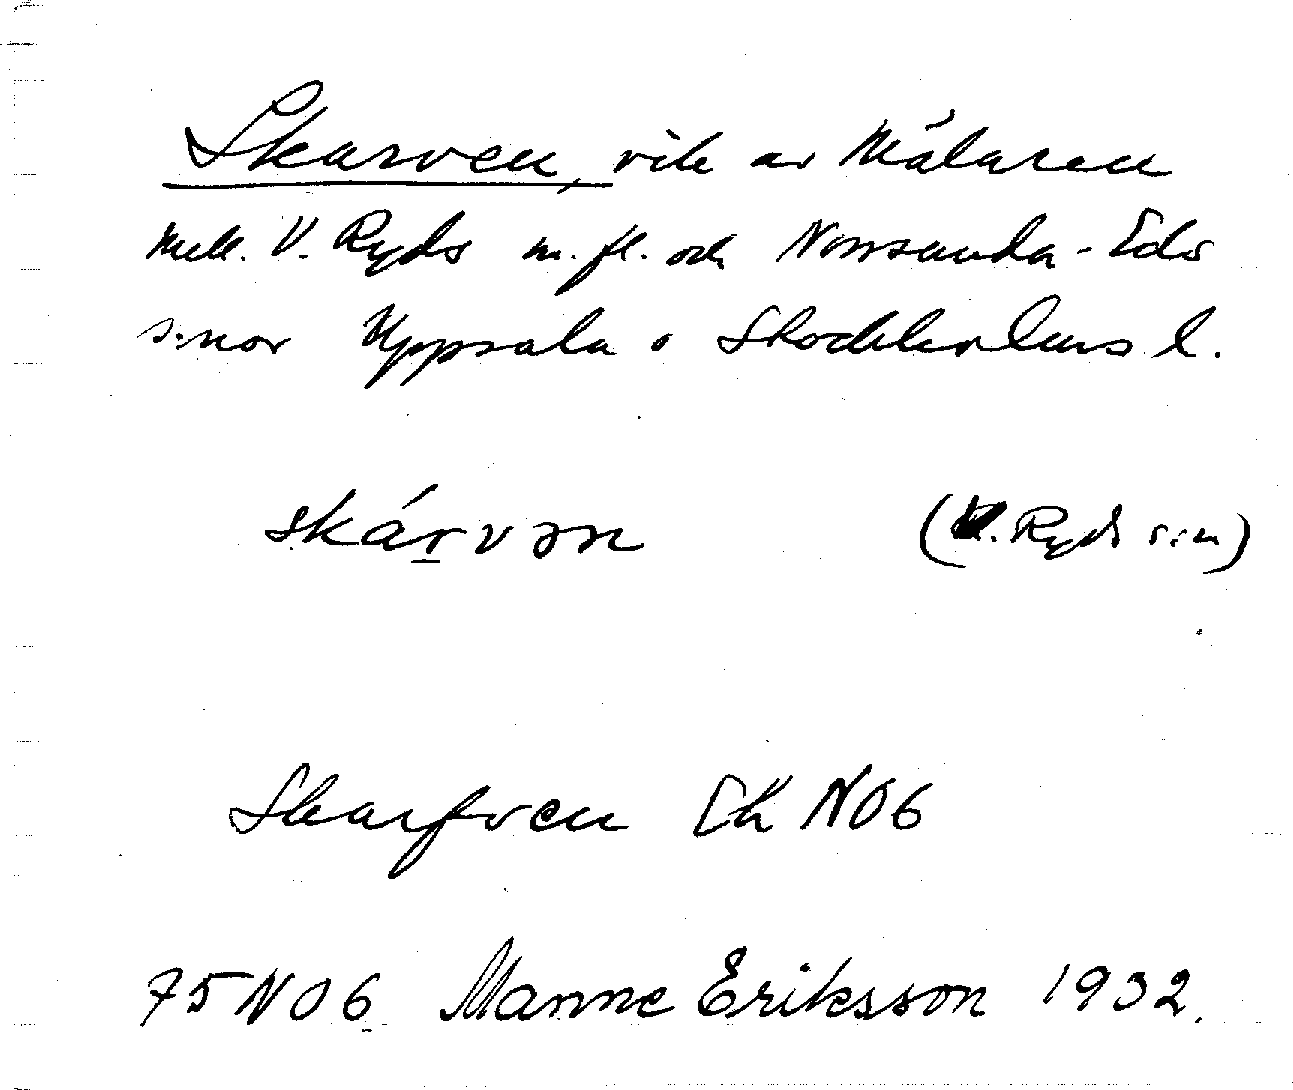 Skarven, vik av Mälaren
mell. V. Ryds m. fl. och Norrsunda-Eds
s:nar Uppsala o Stockholms l.
skárvən (V. Ryds s:n)
Skarfven EK NO6
75 NO6 Manne Eriksson 1932.